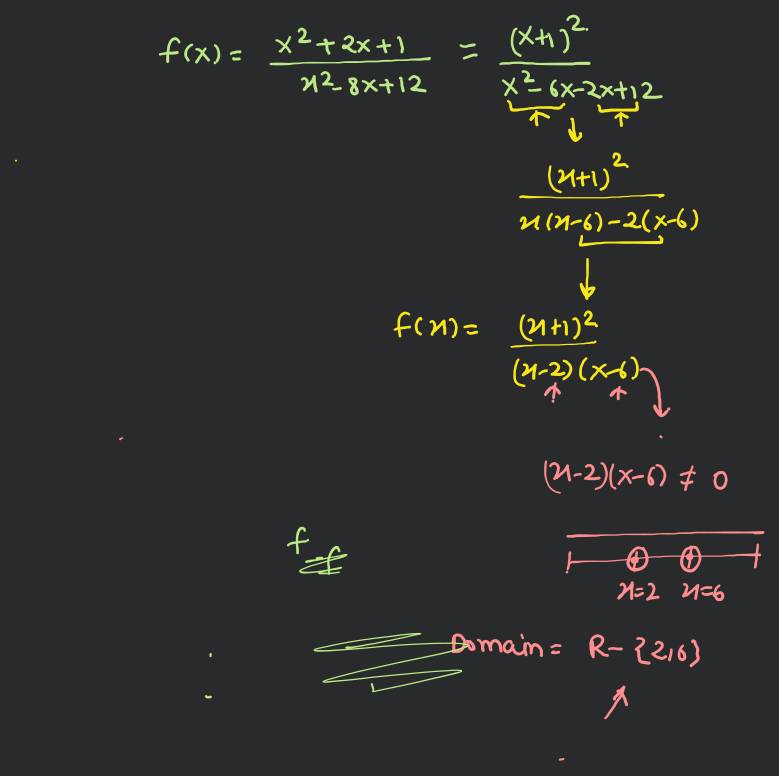 f(x) = x²+2x+1 / x²-8x+12 = (x+1)² / x²-6x-2x+12
(x+1)² / x(x-6)-2(x-6)
f(x) = (x+1)² / (x-2)(x-6)
(x-2)(x-6) ≠ 0
f
x=2 x=6
Domain = R-{2,6}